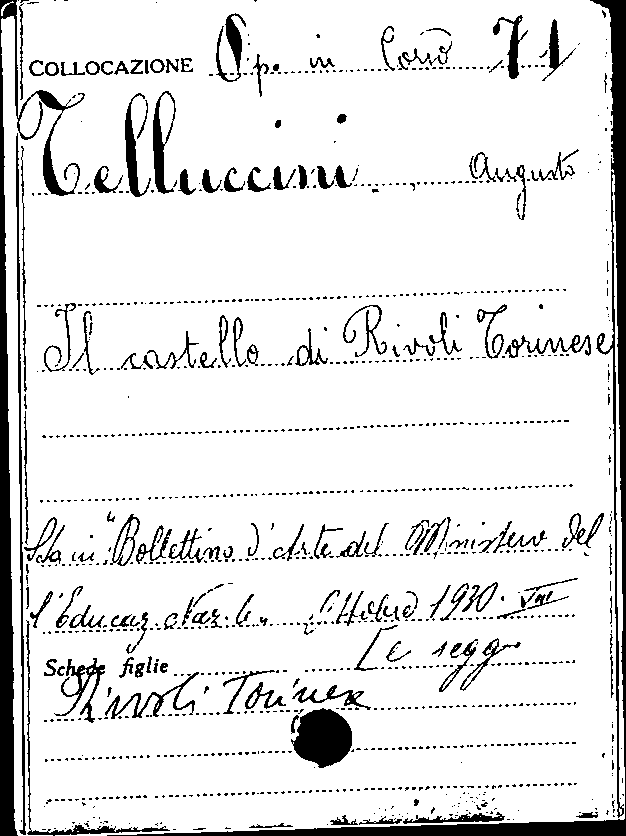 COLLOCAZIONE Op. in Corso 71
Telluccini, Augusto
Il castello di Rivoli Torinese
Sta in "Bollettino d'Arte del Ministero del
l'Educaz. Naz.le" Ottobre 1930. VIII
Schede figlie
Rivoli Torinese